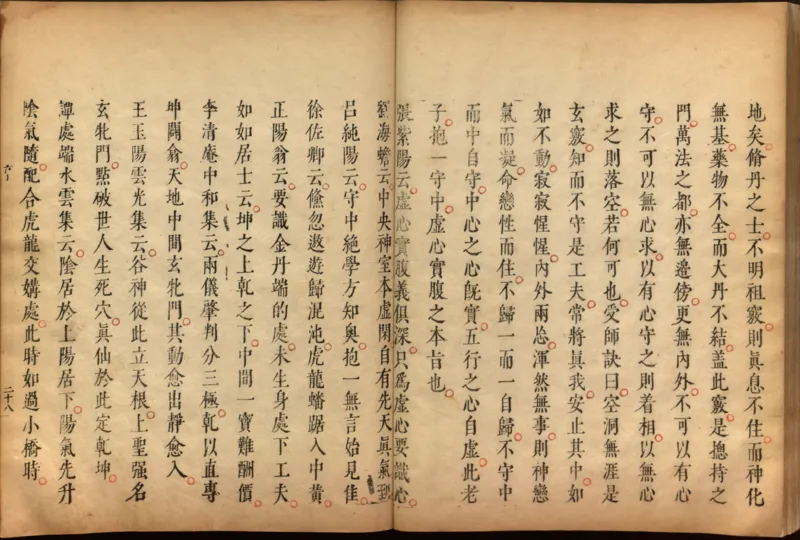 地矣脩丹之士不明祖竅則眞息不住而神化
無基藥物不全而大丹不結蓋此竅是摠持之
門萬法之都亦無邊傍更無內外不可以有心
守不可以無心求以有心守之則着相以無心
求之則落空若何可也受師訣曰空洞無涯是
玄竅知而不守是工夫常將眞我安止其中如
如不動寂寂惺惺內外兩忘渾然無事則神戀
氣而凝命戀性而住不歸一而一自歸不守中
而中自守中心之心旣實五行之心自虛此老
子抱一守中虛心實腹之本旨也
張紫陽云虛心實腹義俱深只爲虛心要識心
劉海蟾云中央神室本虛閒自有先天眞氣到
呂純陽云守中絶學方知奥抱一無言始見佳
徐佐卿云儵忽遨遊歸混沌虎龍蟠踞入中黄
正陽翁云要識金丹端的處未生身處下工夫
如如居士云坤之上乾之下中間一寶難酬價
李清庵中和集云兩儀肇判分三極乾以直專
坤闢翕天地中間玄牝門其動愈出靜愈入
王玉陽雲光集云谷神從此立天根上聖强名
玄牝門點破世人生死穴眞仙於此定乾坤
譚處端水雲集云陰居於上陽居下陽氣先升
陰氣隨配合虎龍交媾處此時如過小橋時
二十八